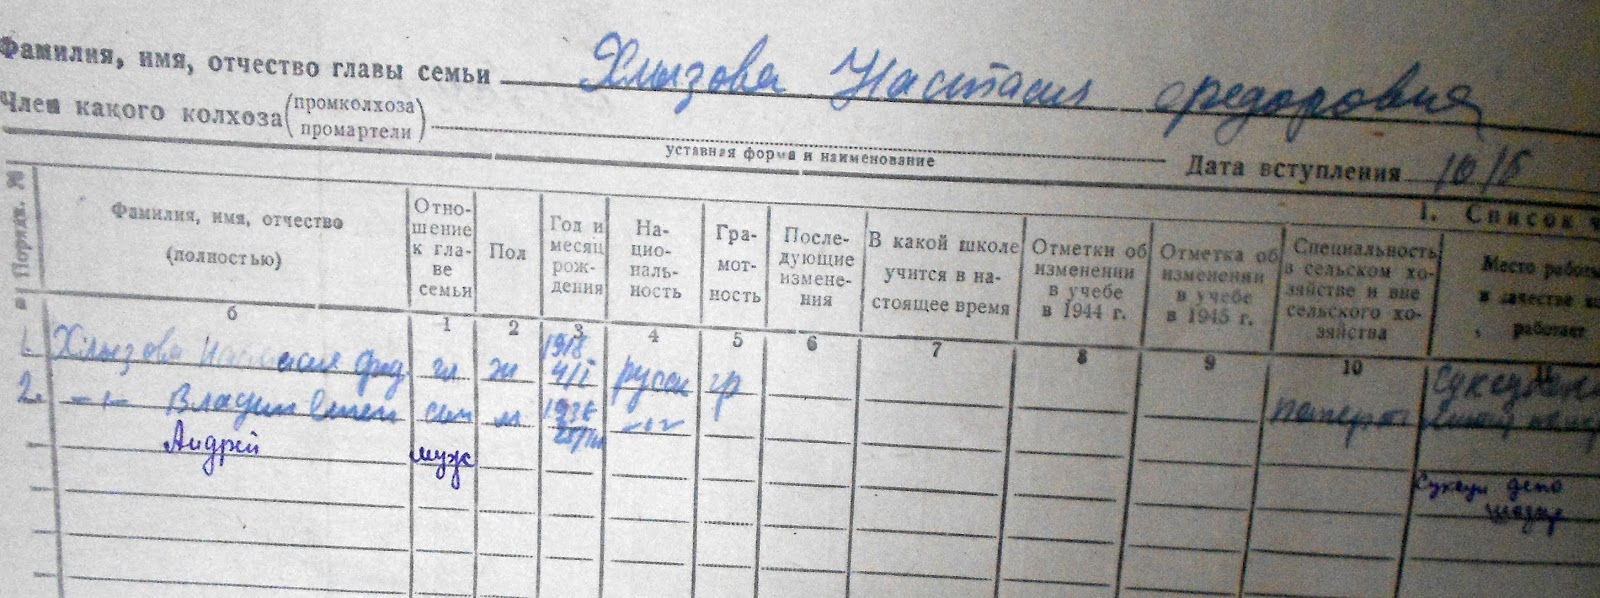 Фамилия, имя, отчество главы семьи Хлызова Настасия Федоровна
Член какого колхоза (промколхоза промартели)
уставная форма и наименование
Дата вступления
I. Список ч
Порядк. №
Фамилия, имя, отчество (полностью)
Отно-шение к гла-ве семьи
Пол
Год и месяц рож-дения
На-цио-наль-ность
Гра-мот-ность
После-дующие измене-ния
В какой школе учится в на-стоящее время
Отметки об изменении в учебе в 1944 г.
Отметка об изменении в учебе в 1945 г.
Специальность в сельском хо-зяйстве и вне сельского хо-зяйства
Место работы в качестве ко работает
а б 1 2 3 4 5 6 7 8 9 10 11
1. Хлызова Настасия Фед. гл ж 1918 4/I русск гр
2. —"— Владим сын м 1936 —"—
Андрей муж
депо